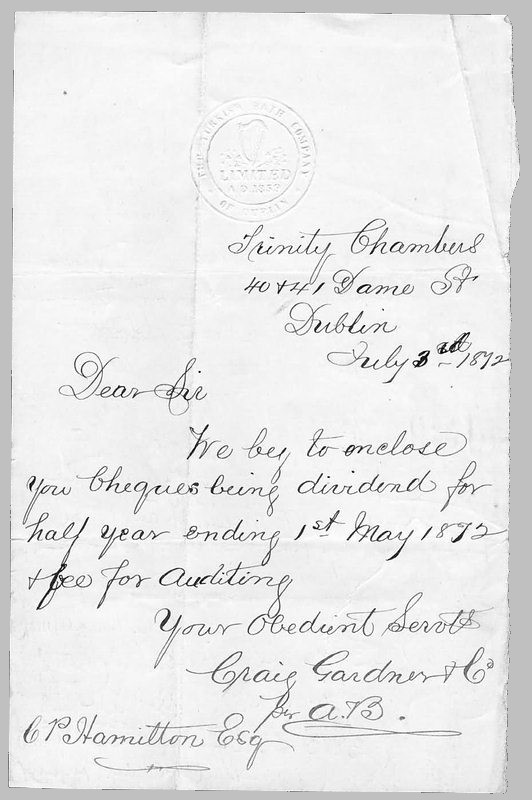 THE TURKISH BATH COMPANY
LIMITED
A.D. 1859
OF DUBLIN
Trinity Chambers
40 & 41 Dame St
Dublin
July 3rd - 1872
Dear Sir
We beg to enclose
you Cheques being dividend for
half year ending 1st May 1872
& fee for Auditing
Your Obedient Servts
Craig Gardner & Co
per A.B.
C P Hamilton Esq